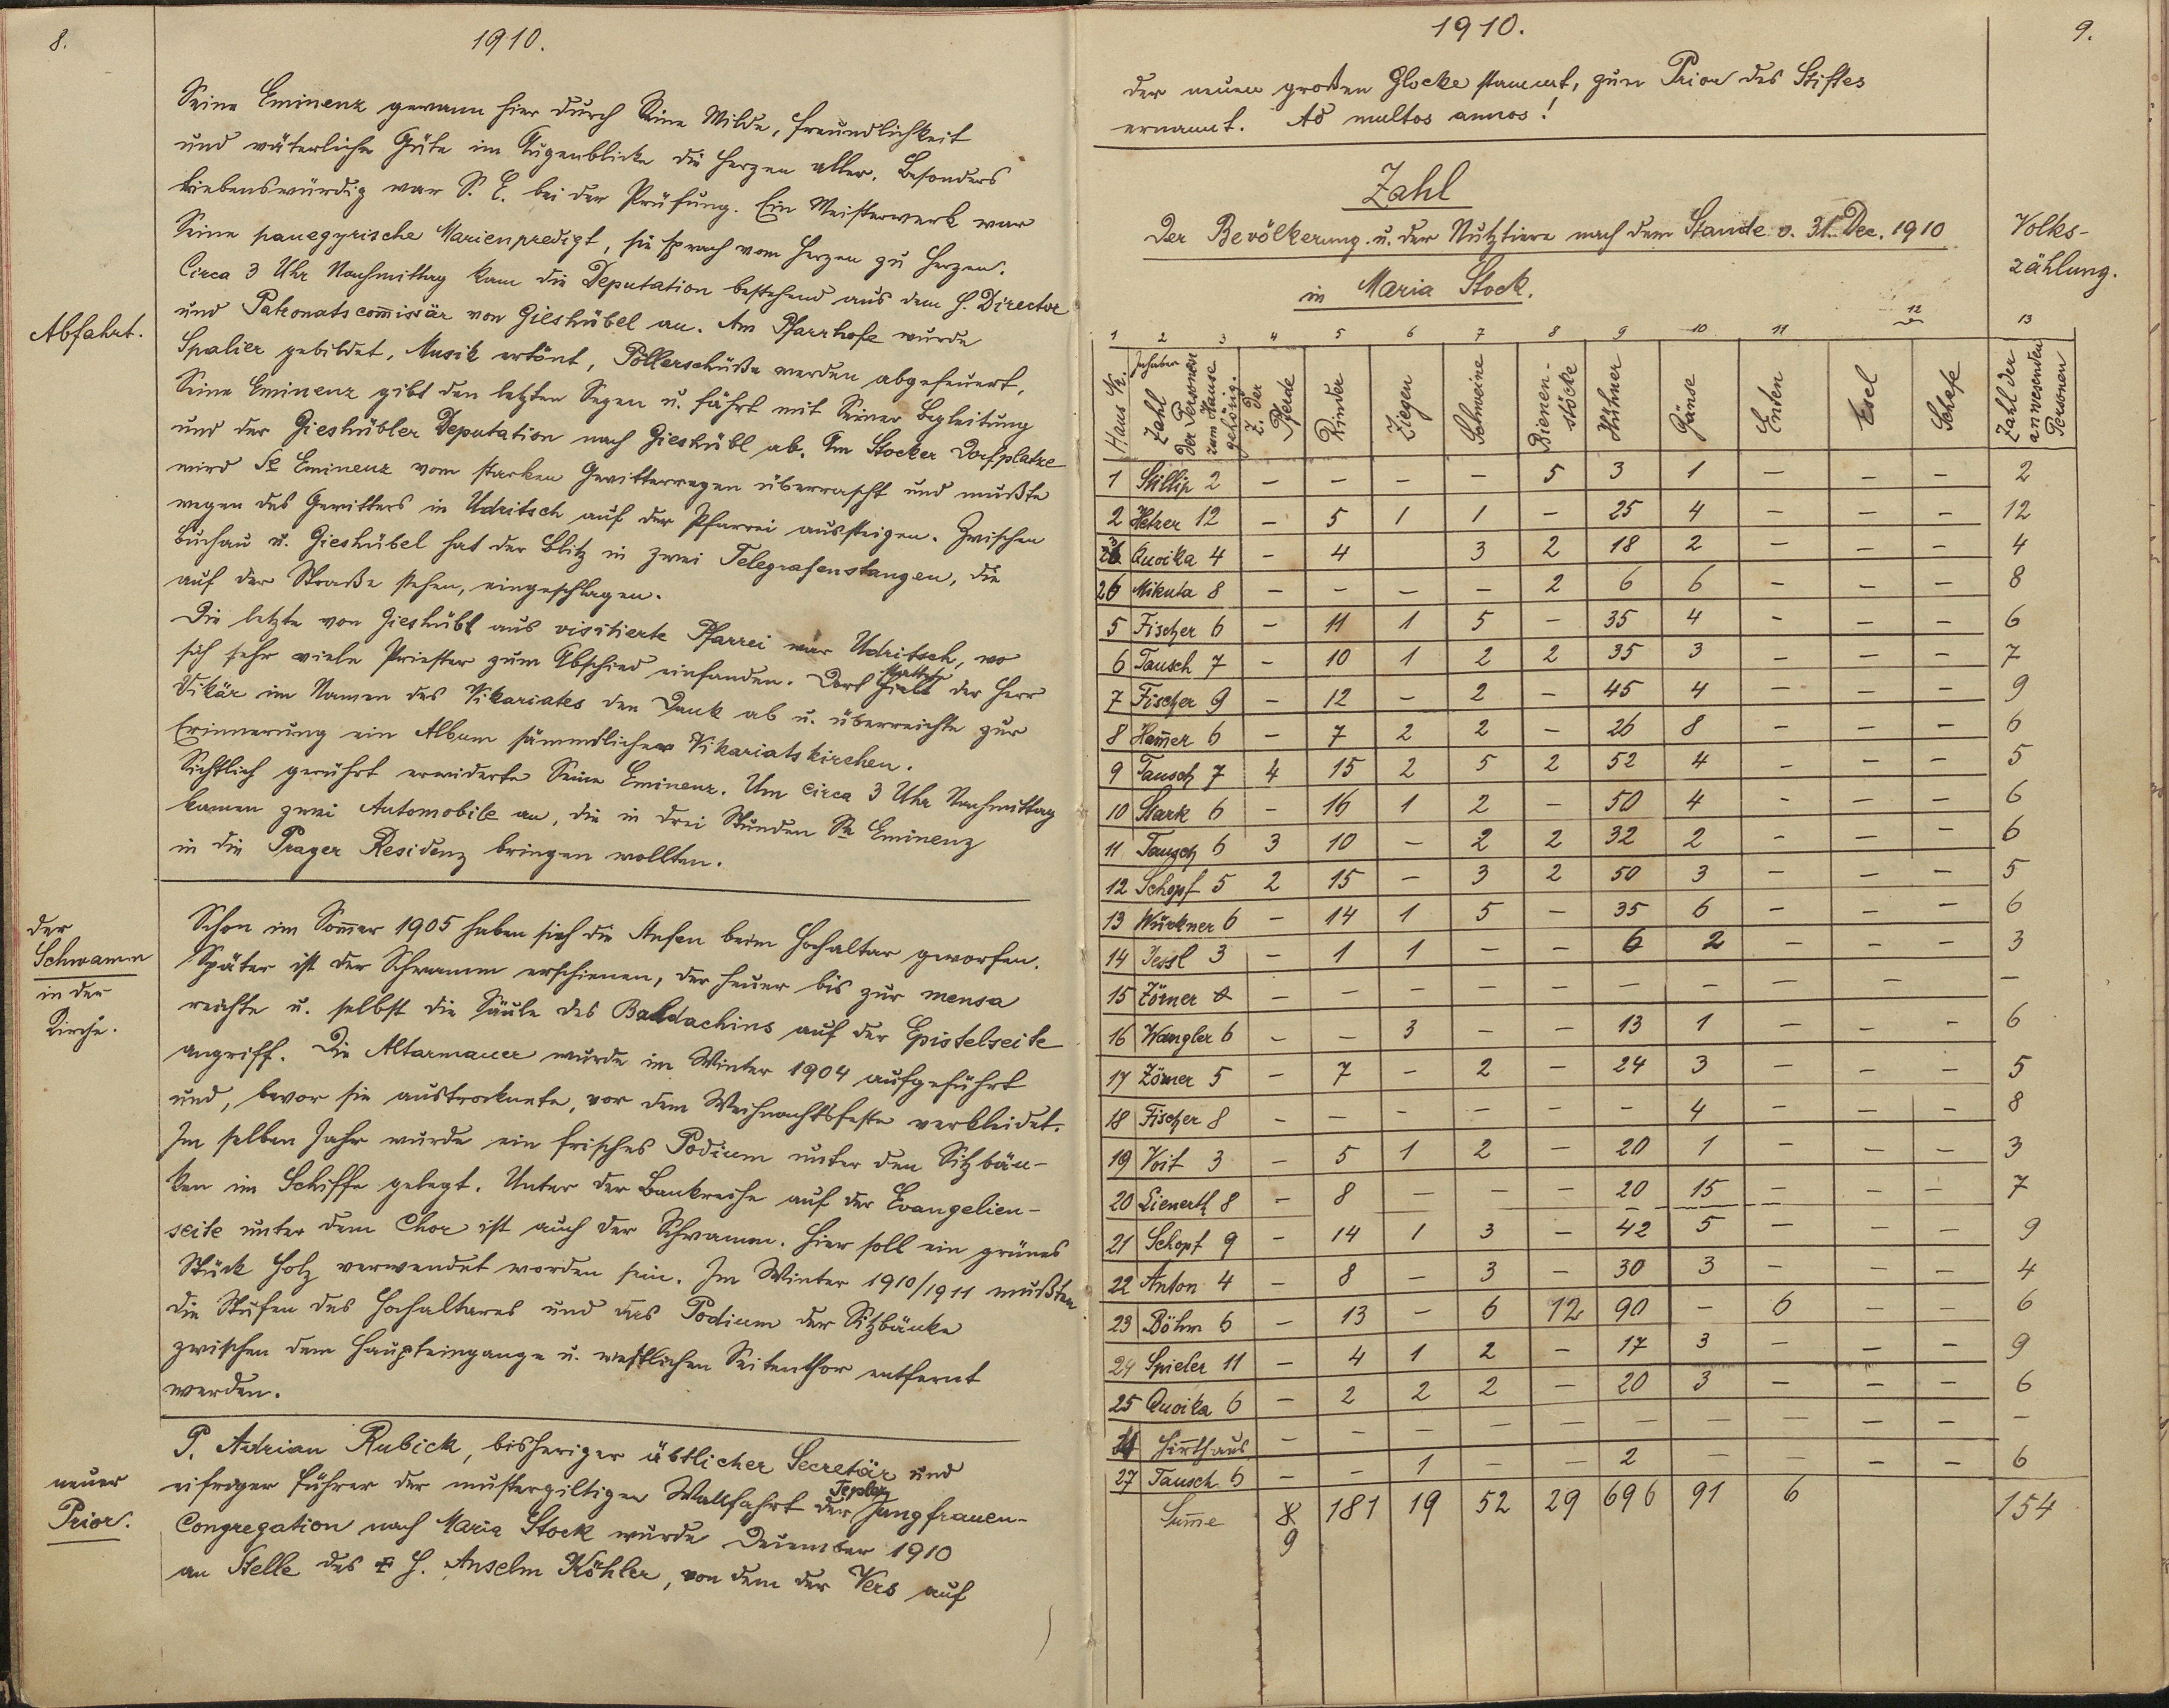 8.
1910.
Seine Eminenz gewann hier durch Seine Milde, Freundlichkeit
und väterliche Güte im Augenblicke die Herzen aller. Besonders
liebenswürdig war S. E. bei der Prüfung. Ein Meisterwerk war
Seine panegyrische Marienpredigt, sie sprach vom Herzen zu Herzen.
Circa 3 Uhr Nachmittag kam die Deputation bestehend aus dem H. Director
und Patronatscom̅issär von Gieshübel an. Am Pfarrhofe wurde
Abfahrt.
Spalier gebildet, Musik ertönt, Pöllerschüße werden abgefeuert,
Seine Eminenz gibt den letzten Segen u. fährt mit Seiner Begleitung
und der Gieshübler Deputation nach Gieshübl ab. Am Stocker Dorfplatze
wird Se Eminenz vom starken Gewitterregen überrascht und mußte
wegen des Gewitters in Udritsch auf der Pfarrei aussteigen. Zwischen
Buchau u. Gieshübel hat der Blitz in zwei Telegrafenstangen, die
auf der Straße stehen, eingeschlagen.
Die letzte von Gieshübl aus visitierte Pfarrei war Udritsch, wo
sich sehr viele Priester zum Abschied einfanden. Dort stattete der Herr
Vikär im Namen des Vikariates den Dank ab u. überreichte zur
Erinnerung ein Album sämmdlicher Vikariatskirchen.
Sichtlich gerührt erwiderte Seine Eminenz. Um circa 3 Uhr Nachmittag
kamen zwei Automobile an, die in drei Stunden Se Eminenz
in die Prager Residenz bringen wollten.
der
Schwamm
in der
Kirche.
Schon im Som̅er 1905 haben sich die Stufen beim Hochaltar geworfen.
Später ist der Schwamm erschienen, der heuer bis zur mensa
reichte u. selbst die Säule des Baldachins auf der Epistelseite
angriff. Die Altarmauer wurde im Winter 1904 aufgeführt
und, bevor sie austrocknete, vor dem Weihnachtsfeste verkleidet.
Im selben Jahr wurde ein frisches Podium unter den Sitzbän-
ken im Schiffe gelegt. Unter der Bankreihe auf der Evangelien-
seite unter dem Chor ist auch der Schwamm. Hier soll ein grünes
Stück Holz verwendet worden sein. Im Winter 1910/1911 mußten
die Stufen des Hochaltares und das Podium der Sitzbänke
zwischen dem Haupteingange u. westlichen Seitenthor entfernt
werden.
neuer
Prior.
P. Adrian Rubick, bisheriger äbtlicher Secretär und
eifriger Führer der mustergiltigen Wallfahrt der Tepler Jungfrauen-
Congregation nach Maria Stock wurde December 1910
an Stelle des H. Anselm Köhler, von dem der Vers auf
1910.
9.
der neuen großen Glocke stammt, zum Prior des Stiftes
ernannt. Ad multos annos!
Zahl
Der Bevölkerung u. der Nutztiere nach dem Stande v. 31. Dec. 1910
in Maria Stock.
Volks-
zählung.
1 2 3 4 5 6 7 8 9 10 11 12 13
Haus Nr. Inhaber Zahl der Personen zum Hause gehörig. Z. der Pferde Rinder Ziegen Schweine Bienen-stöcke Hühner Gänse Enten Esel Schafe Zahl der anwesenden Personen
1 Skillip 2 – – – – 5 3 1 – – – 2
2 Hetzer 12 – 5 1 1 – 25 4 – – – 12
3 Quoika 4 – 4 3 2 18 2 – – – 4
26 Mikuta 8 – – – – 2 6 6 – – – 8
5 Fischer 6 – 11 1 5 – 35 4 – – – 6
6 Tausch 7 – 10 1 2 2 35 3 – – – 7
7 Fischer 9 – 12 – 2 – 45 4 – – – 9
8 Ham̅er 6 – 7 2 2 – 26 8 – – – 6
9 Tausch 7 4 15 2 5 2 52 4 – – – 5
10 Stark 6 – 16 1 2 – 50 4 – – – 6
11 Tausch 6 3 10 – 2 2 32 2 – – – 6
12 Schopf 5 2 15 – 3 2 50 3 – – – 5
13 Würkner 6 – 14 1 5 – 35 6 – – – 6
14 Jessl 3 – 1 1 – – 6 2 – – – 3
15 Zörner – – – – – – – – – – –
16 Wangler 6 – – 3 – – 13 1 – – – 6
17 Zörner 5 – 7 – 2 – 24 3 – – – 5
18 Fischer 8 – – – – – – 4 – – – 8
19 Voit 3 – 5 1 2 – 20 1 – – – 3
20 Lienerth 8 – 8 – – – 20 15 – – – 7
21 Schopf 9 – 14 1 3 – 42 5 – – – 9
22 Anton 4 – 8 – 3 – 30 3 – – – 4
23 Böhm 6 – 13 – 6 12 90 – 6 – – 6
24 Spieler 11 – 4 1 2 – 17 3 – – – 9
25 Quoika 6 – 2 2 2 – 20 3 – – – 6
Hirthaus – – – – – – – – – – –
27 Tausch 6 – – 1 – – 2 – – – – 6
Sum̅e 8 9 181 19 52 29 696 91 6 154